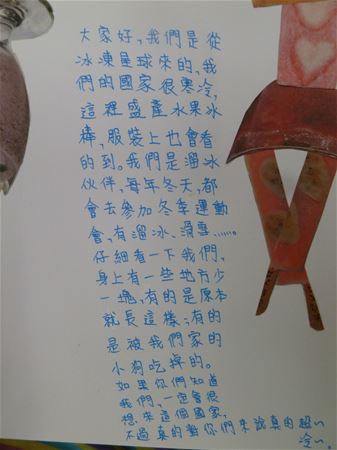 大家好,我們是從
冰凍星球來的,我
們的國家很寒冷,
這裡盛產水果冰
棒,服裝上也會看
的到。我們是溜冰
伙伴,每年冬天,都
會去參加冬季運動
會,有溜冰、滑雪……
仔細看一下我們,
身上有一些地方少
一塊,有的是原本
就長這樣;有的
是被我們家的
小狗吃掉的。
如果你們知道
我們,一定會很
想來這個國家,
不過真的對你們來說真的超~
冷~。